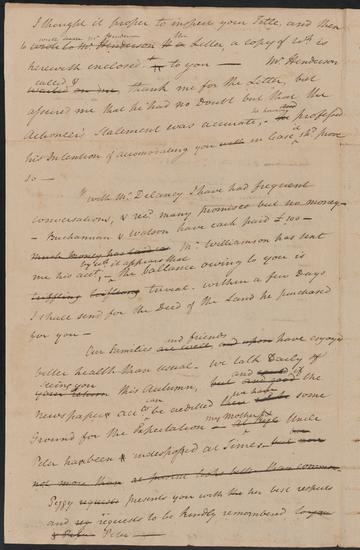 I thought it proper to inspect your Title, and then
to wrote to Mr Henderson the Letter, a copy of wch is
herewith enclosed to you — Mr Henderson
called & waited on me, thank me for the Letter, but
assured me that he had no Doubt but that the
Auctioneer's Statement was accurate, he professed
his Intention of accomodating you in Case it shd prove
so —
"With Mr Delancy I have had frequent
conversations, & recd many promises but no money —
Buchannan & Watson have each paid £100 —
much money has Mr Williamson has sent
me his acct, by wch it appears that the ballance owing to you is
trifling trivial. within a few Days
I shall send for the Deed of the Land he purchased
for you —
Our Families and friends are well and upon have enjoyed
better health than usual. we talk Daily of
seeing you this Autumn, but and good if the
newspaper accts can be credited we have some
Ground for the Expectation — my mother & Uncle
Peter has been indisposed at Times but now
not more than at present looks better than common
Peggy requests presents you with her best respects
and requests to be kindly remembered to you
& Peter Peter —